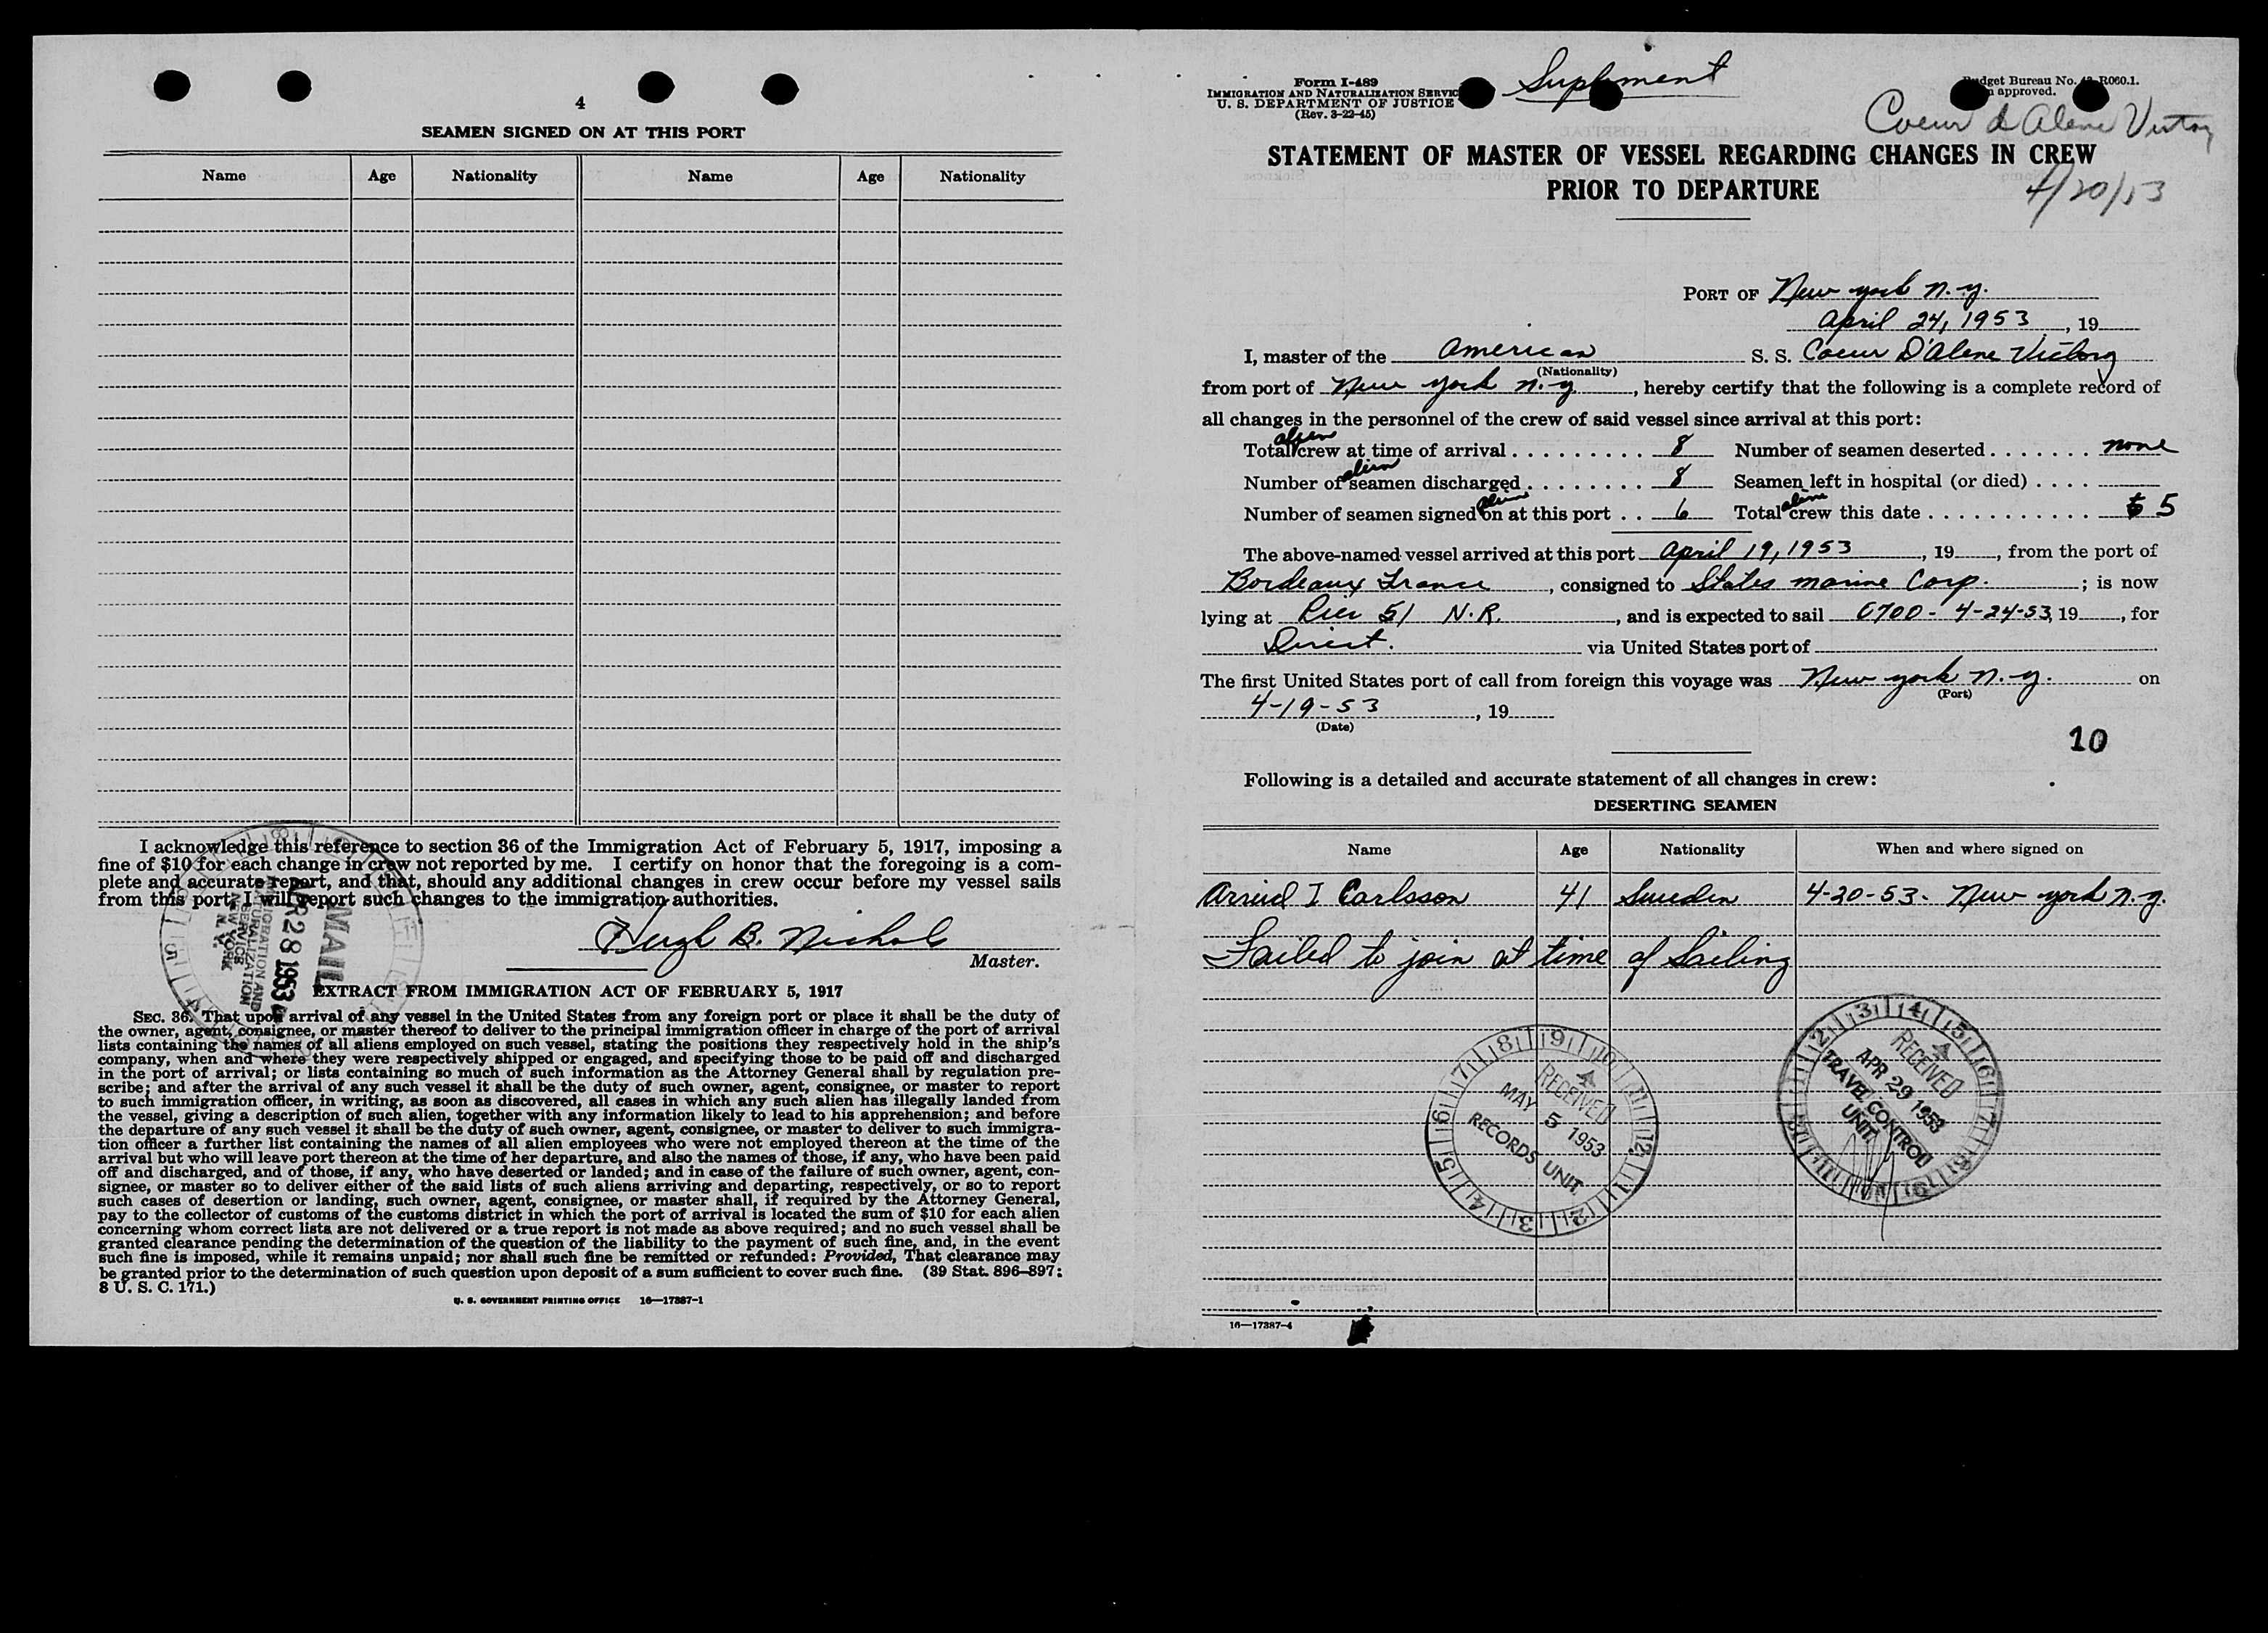 4
SEAMEN SIGNED ON AT THIS PORT
Name Age Nationality Name Age Nationality
I acknowledge this reference to section 36 of the Immigration Act of February 5, 1917, imposing a
fine of $10 for each change in crew not reported by me. I certify on honor that the foregoing is a com-
plete and accurate report, and that, should any additional changes in crew occur before my vessel sails
from this port, I will report such changes to the immigration authorities.
Hugh B. Nichols
Master.
MAIL
APR 28 1953
IMMIGRATION AND
NATURALIZATION
SERVICE
NEW YORK
N. Y.
EXTRACT FROM IMMIGRATION ACT OF FEBRUARY 5, 1917
SEC. 36. That upon arrival of any vessel in the United States from any foreign port or place it shall be the duty of
the owner, agent, consignee, or master thereof to deliver to the principal immigration officer in charge of the port of arrival
lists containing the names of all aliens employed on such vessel, stating the positions they respectively hold in the ship's
company, when and where they were respectively shipped or engaged, and specifying those to be paid off and discharged
in the port of arrival; or lists containing so much of such information as the Attorney General shall by regulation pre-
scribe; and after the arrival of any such vessel it shall be the duty of such owner, agent, consignee, or master to report
to such immigration officer, in writing, as soon as discovered, all cases in which any such alien has illegally landed from
the vessel, giving a description of such alien, together with any information likely to lead to his apprehension; and before
the departure of any such vessel it shall be the duty of such owner, agent, consignee, or master to deliver to such immigra-
tion officer a further list containing the names of all alien employees who were not employed thereon at the time of the
arrival but who will leave port thereon at the time of her departure, and also the names of those, if any, who have been paid
off and discharged, and of those, if any, who have deserted or landed; and in case of the failure of such owner, agent, con-
signee, or master so to deliver either of the said lists of such aliens arriving and departing, respectively, or so to report
such cases of desertion or landing, such owner, agent, consignee, or master shall, if required by the Attorney General,
pay to the collector of customs of the customs district in which the port of arrival is located the sum of $10 for each alien
concerning whom correct lists are not delivered or a true report is not made as above required; and no such vessel shall be
granted clearance pending the determination of the question of the liability to the payment of such fine, and, in the event
such fine is imposed, while it remains unpaid; nor shall such fine be remitted or refunded: Provided, That clearance may
be granted prior to the determination of such question upon deposit of a sum sufficient to cover such fine. (39 Stat. 896-897;
8 U. S. C. 171.)
U. S. GOVERNMENT PRINTING OFFICE 16—17387-1
Form I-489
IMMIGRATION AND NATURALIZATION SERVICE
U. S. DEPARTMENT OF JUSTICE
(Rev. 3-22-45)
Supliment
Budget Bureau No. 43-R060.1.
approved.
Coeur d Alene Victory
4/20/53
STATEMENT OF MASTER OF VESSEL REGARDING CHANGES IN CREW
PRIOR TO DEPARTURE
PORT OF New york n.y.
April 24, 1953, 19
I, master of the American S. S. Coeur D'Alene Victory
(Nationality)
from port of New York n.y, hereby certify that the following is a complete record of
all changes in the personnel of the crew of said vessel since arrival at this port:
Total alien crew at time of arrival . . . . . . . . . 8 Number of seamen deserted . . . . . . . none
Number of alien seamen discharged . . . . . . . . 8 Seamen left in hospital (or died) . . . .
Number of seamen signed alien on at this port . . 6 Total alien crew this date . . . . . . . . . . . 5
The above-named vessel arrived at this port April 19, 1953, 19, from the port of
Bordeaux France, consigned to States marine Corp.; is now
lying at Pier 51 N.R., and is expected to sail 0700 - 4-24-53, 19, for
Direct. via United States port of
The first United States port of call from foreign this voyage was New york n.y. on
(Port)
4-19-53, 19
(Date)
10
Following is a detailed and accurate statement of all changes in crew:
DESERTING SEAMEN
Name Age Nationality When and where signed on
Arvid I Carlsson 41 Sweden 4-20-53. New york n.y.
Failed to join at time of Sailing
RECEIVED
MAY 5 1953
RECORDS UNIT
RECEIVED
APR 29 1953
TRAVEL CONTROL
UNIT
16—17387-4